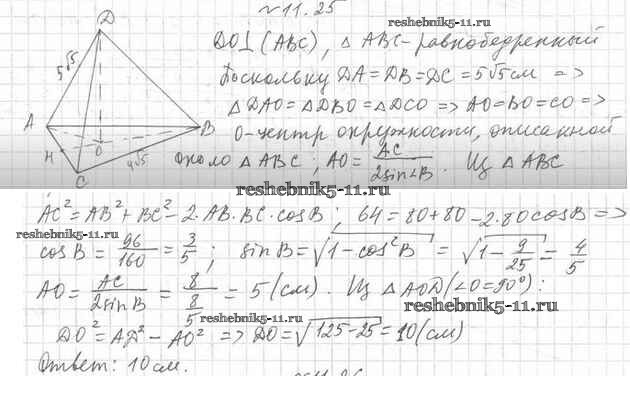 №11.25
reshebnik5-11.ru
D
5√5
A
B
C
H
O
4√5
DO⊥(ABC), △ABC - равнобедренный
Поскольку DA=DB=DC=5√5 см =>
△DAO=△DBO=△DCO => AO=BO=CO =>
O-центр окружности, описанной
около △ABC; AO= AC/2sin∠B. Из △ABC
reshebnik5-11.ru
AC²=AB²+BC²-2·AB·BC·cosB; 64=80+80-2·80cosB =>
reshebnik5-11.ru
cosB= 96/160 = 3/5; sinB=√(1-cos²B) = √(1-9/25) = 4/5
AO= AC/2sinB = 8/(8/5) = 5(см). Из △AOD(∠O=90°):
reshebnik5-11.ru
reshebnik5-11.ru
DO²=AD²-AO² => DO=√(125-25)=10(см)
reshebnik5-11.ru
Ответ: 10см.